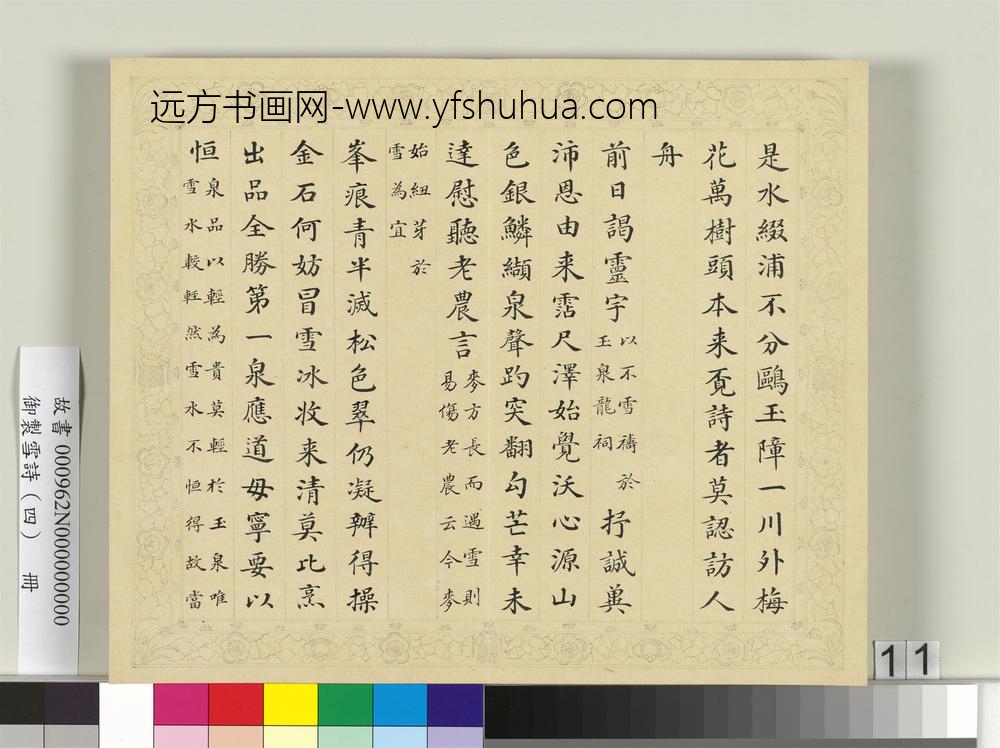 远方书画网-www.yfshuhua.com
是水綴浦不分鷗玉障一川外梅
花萬樹頭本来覔詩者莫認訪人
舟
前日謁靈宇以不雪禱於玉泉龍祠抒誠冀
沛恩由来霑尺澤始覺沃心源山
色銀鱗纈泉聲趵突翻勾芒幸未
達慰聽老農言麥方長而遇雪則易傷老農云今麥
始紐芽於雪為宜
峯痕青半滅松色翠仍凝辦得操
金石何妨冒雪冰收来清莫比烹
出品全勝第一泉應道毋寧要以
恒泉品以輕為貴莫輕於玉泉唯雪水較輕然雪水不恒得故當
故書 000962N000000000
御製雪詩（四） 冊
11